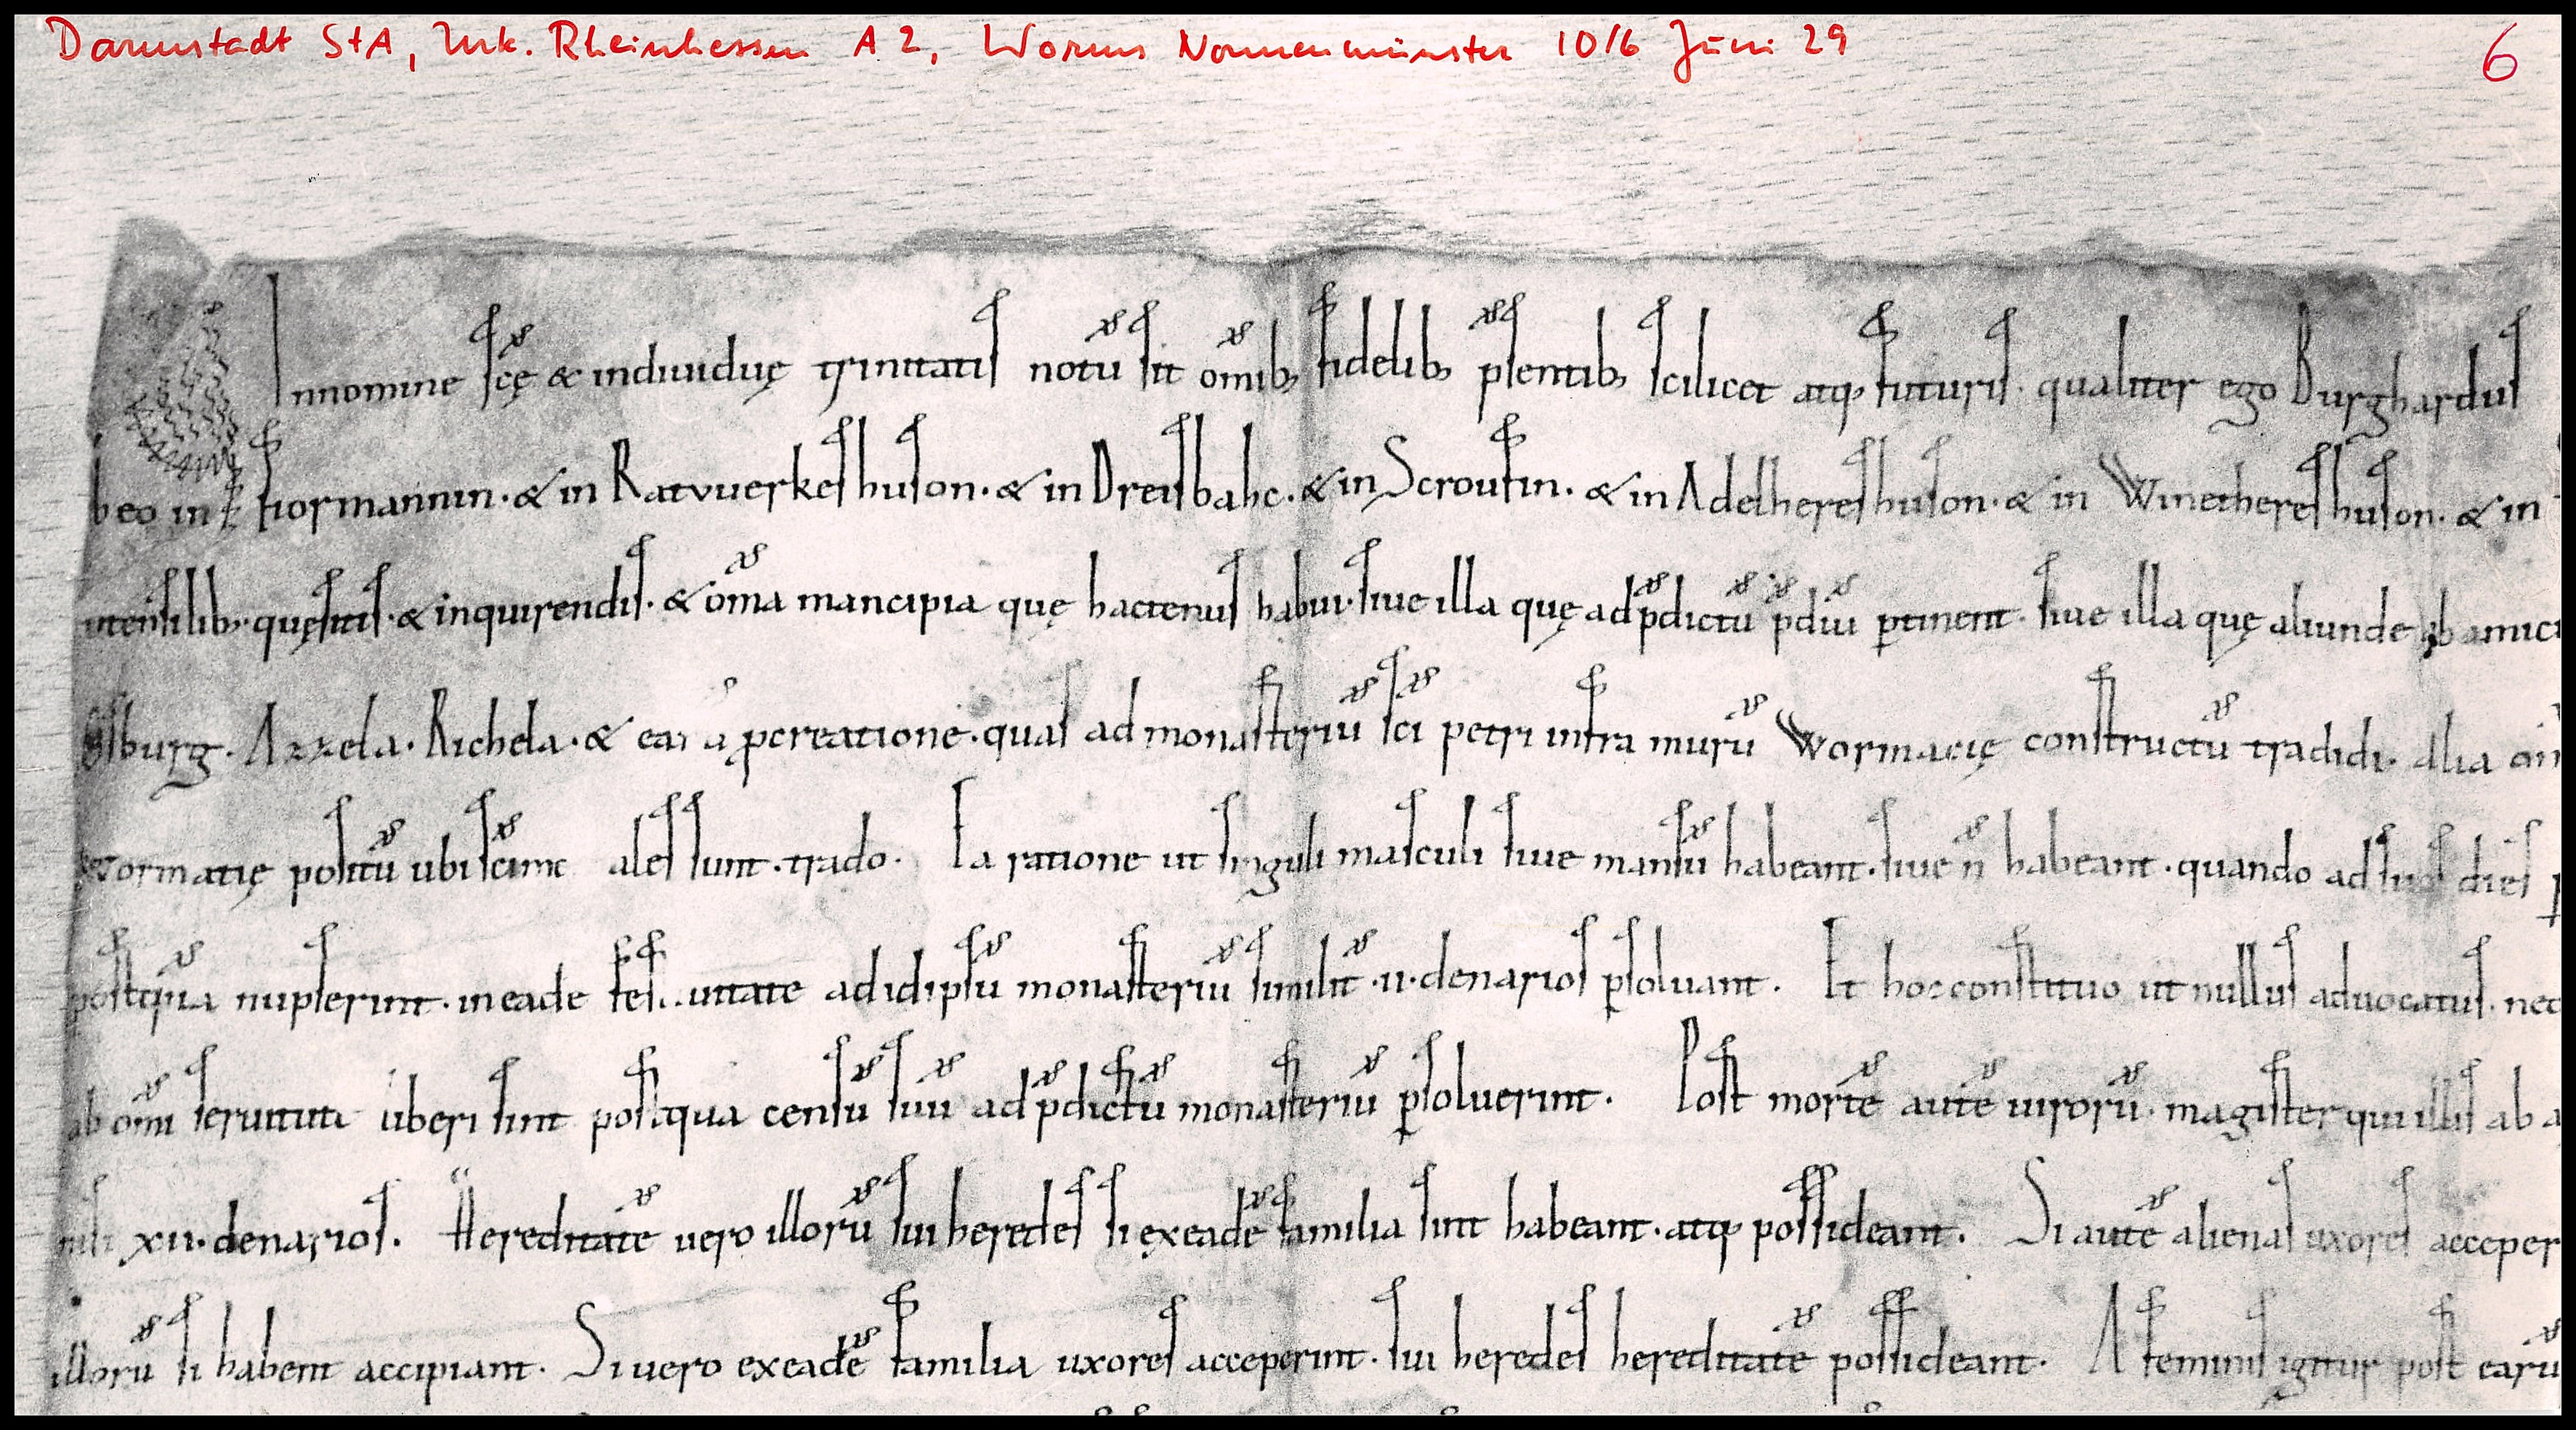 Darmstadt StA, Urk. Rheinhessen A 2, Worms Nonnenmünster 1016 Juni 29
6
Innomine scę & indiuiduę trinitatis notū sit om̄ib; fidelib; p̄sentib; scilicet atq; futuris. qualiter ego Burghardus
beo in fiormannin. & in Ratvuerkeshuson. & in Dreisbahc. & in Scroufin. & in Adelhereshuson. & in Winethereshuson. & in
utensilib; quęsitis. & inquirendis. & om̄a mancipia quę hactenus habui. siue illa quę ad p̄dictū p̄diū ꝑtinent. siue illa quę aliunde ab amici
burg. Azzela. Richela. & ꝓcreatione. quas ad monasteriū sc̄i petri infra murū Wormacię constructū tradidi. Alia
wormatię positū ubi sunt. trado. Ea ratione ut singuli masculi siue mansū habeant. siue n̄ habeant. quando ad suos dies
postquā nupserint. in eade ad id ipsū monasteriū similit̄ .ii. denarios ꝑsoluant. Et hoc constituo ut nullus aduocatus. nec
ab om̄i seruitute liberi sint postqua censū suū ad p̄dictū monasteriū ꝑsoluerint. Post mortē autē uirorū. magister qui illis ab
xii. denarios. Hereditatē uero illorū sui heredes si ex eadē familia sint habeant. atq; possideant. Si autē alienas uxores acceper
illorū si habent accipiant. Si uero ex eadē familia uxores acceperint. sui heredes hereditatē possideant. A feminis igitur post earū